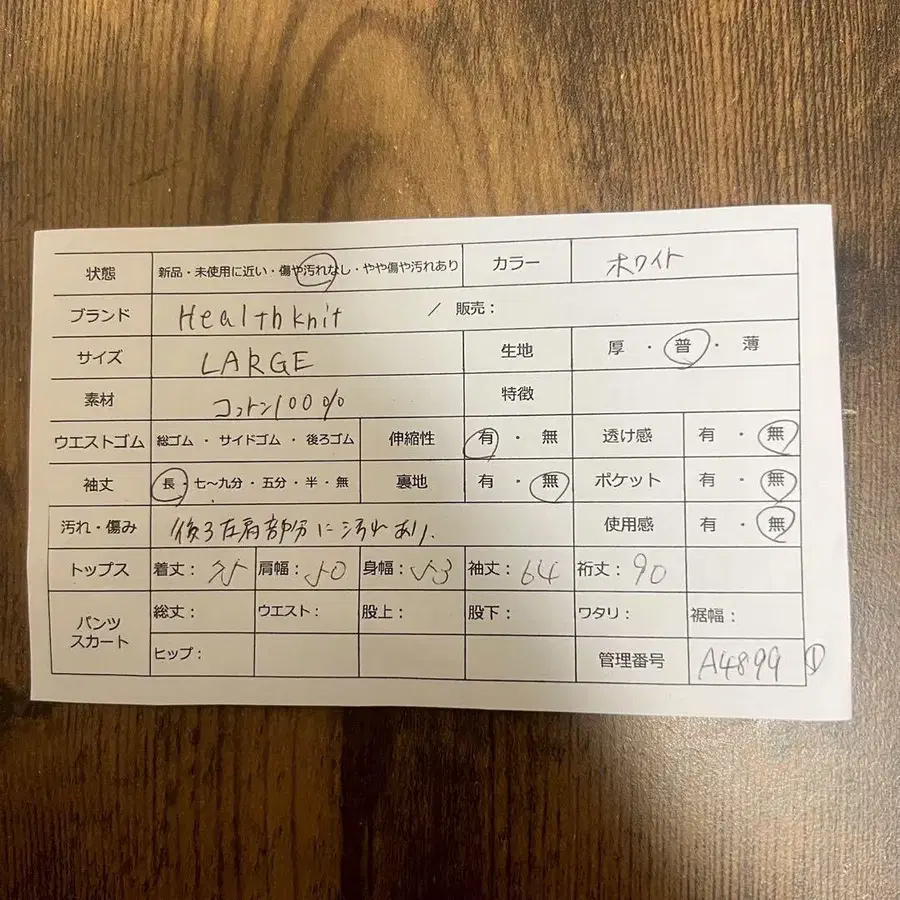 状態 新品・未使用に近い・傷や汚れなし・やや傷や汚れあり カラー ホワイト
ブランド Healthknit / 販売:
サイズ LARGE 生地 厚・普・薄
素材 コットン100% 特徴
ウエストゴム 総ゴム・サイドゴム・後ろゴム 伸縮性 有・無 透け感 有・無
袖丈 長・七〜九分・五分・半・無 裏地 有・無 ポケット 有・無
汚れ・傷み 後ろ左肩部分に汚れあり. 使用感 有・無
トップス 着丈: 肩幅:50 身幅:53 袖丈:64 裄丈:90
パンツ スカート 総丈: ウエスト: 股上: 股下: ワタリ: 裾幅:
ヒップ: 管理番号 A4899 ①